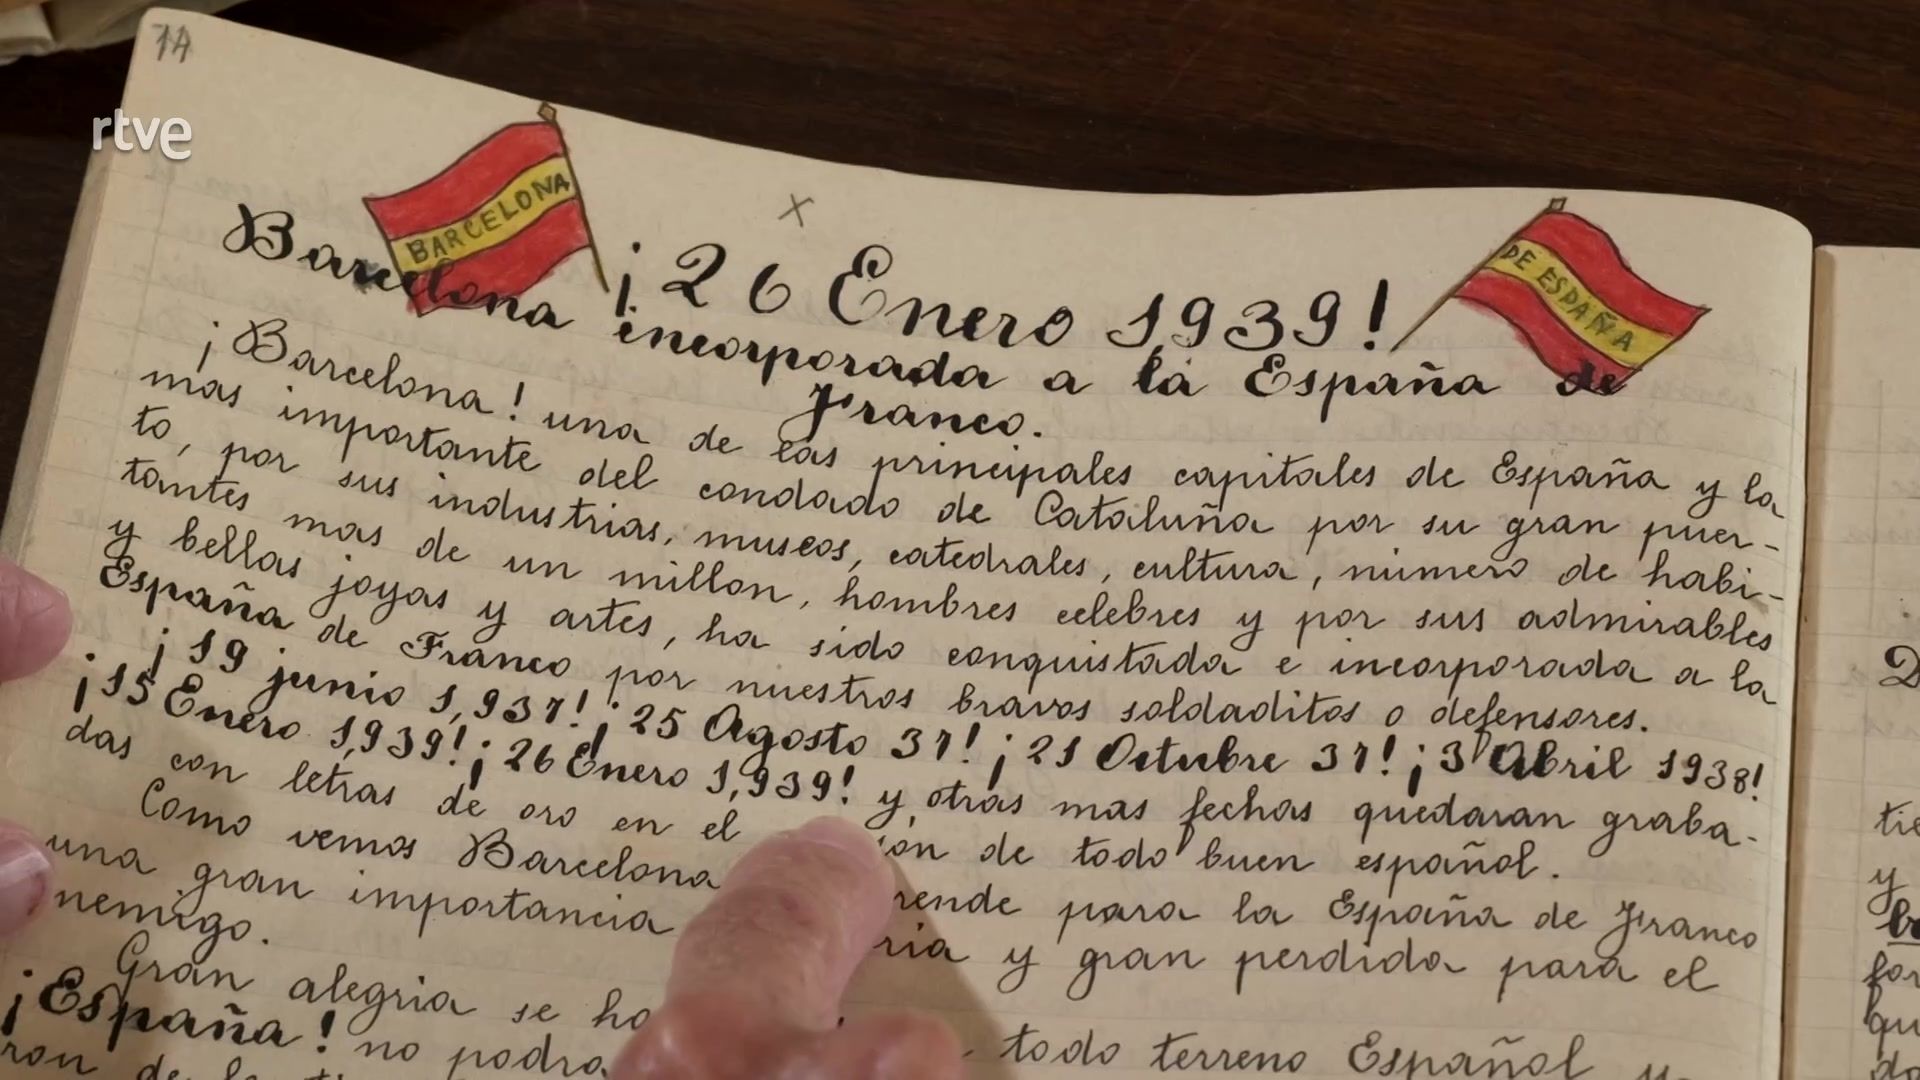 14
rtve
BARCELONA
DE ESPAÑA
¡26 Enero 1,939!
Barcelona incorporada a la España de
Franco.
¡Barcelona! una de las principales capitales de España y la
mas importante del condado de Cataluña por su gran puer-
to, por sus industrias, museos, catedrales, cultura, número de habi-
tantes mas de un millon, hombres celebres y por sus admirables
y bellas joyas y artes, ha sido conquistada e incorporada a la
España de Franco por nuestros bravos soldaditos o defensores.
¡19 junio 1,937! ¡25 Agosto 37! ¡21 Octubre 37! ¡3 Abril 1938!
¡15 Enero 1,939! ¡26 Enero 1,939! y otras mas fechas quedaran graba-
das con letras de oro en el de todo buen español.
Como vemos Barcelona para la España de Franco
una gran importancia y gran perdida para el
nemigo.
Gran alegria se todo terreno Español
¡España! no